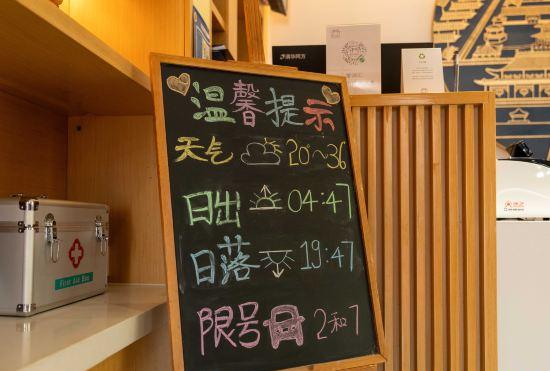 温馨提示
天气 20°~36
日出 04:47
日落 19:47
限号 2和7
First Aid Box
清华同方